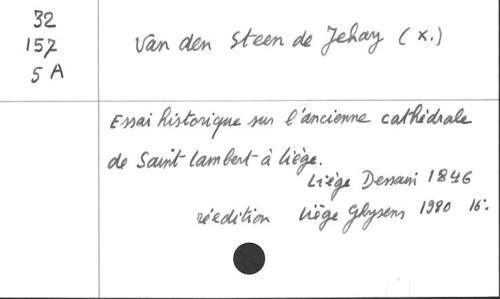 32
157
5 A
Van den Steen de Jehay (X.)
Essai historique sur l'ancienne cathédrale
de Saint Lambert à Liège.
Liège Dessain 1846
réédition Liège Ghysens 1980 16: